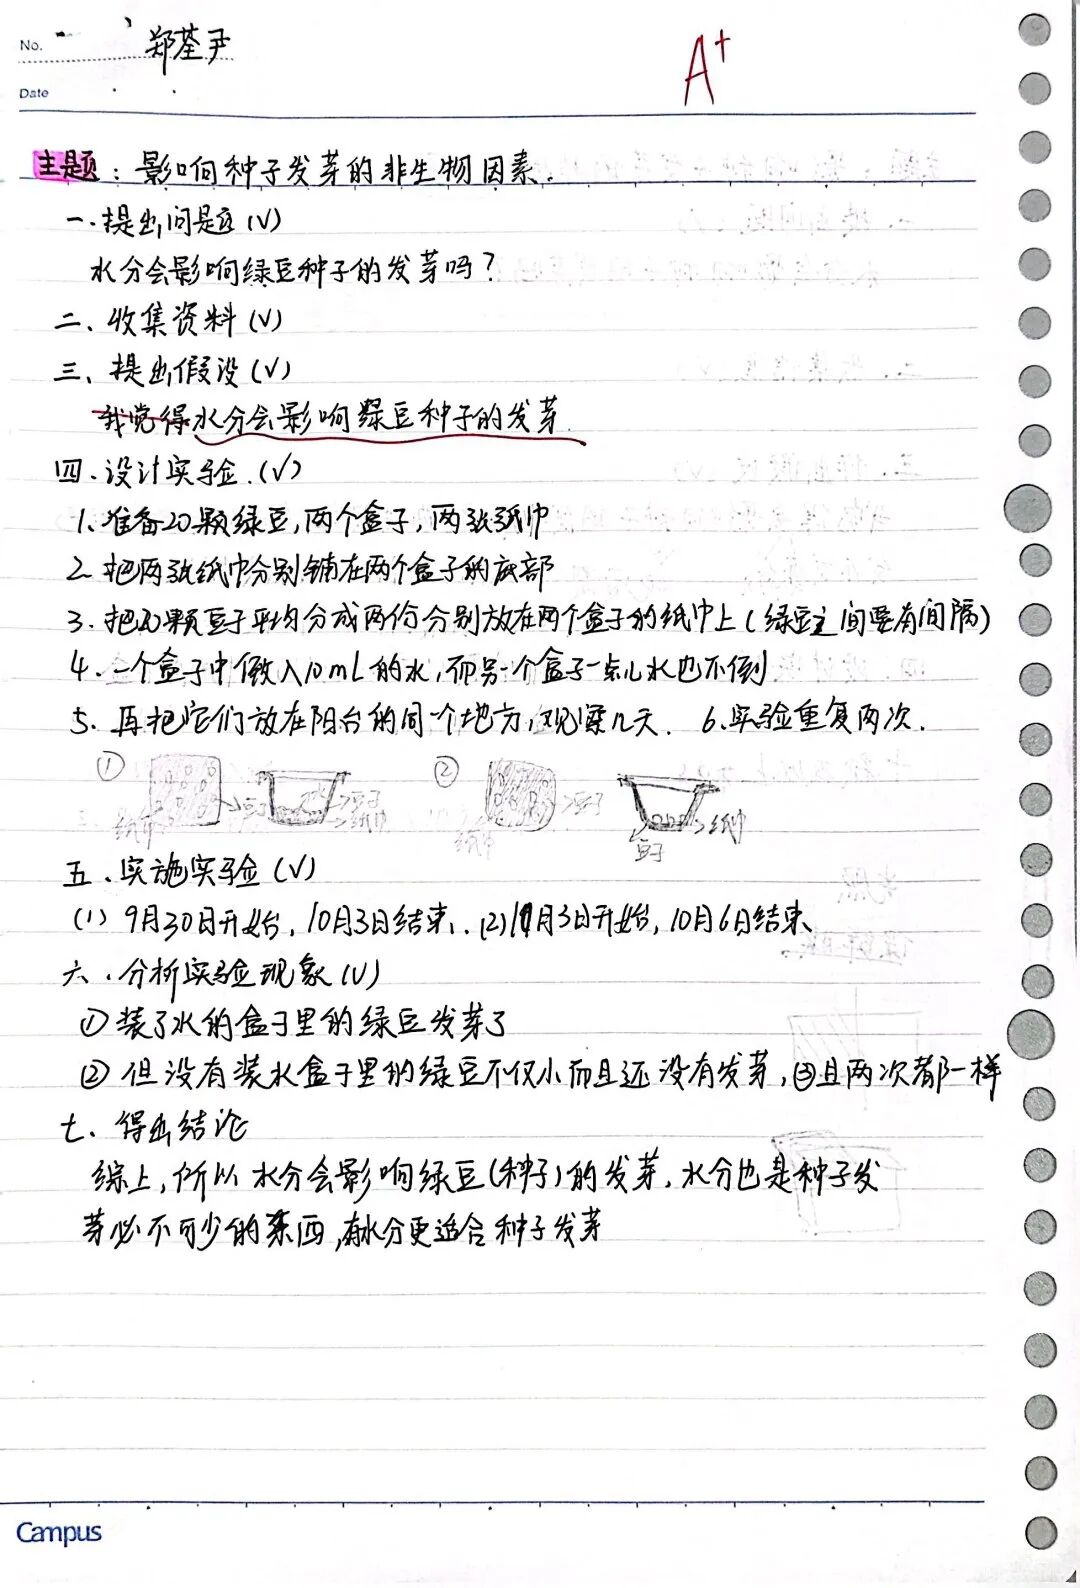 No.
郑荃尹
A+
Date
主题：影响种子发芽的非生物因素.
一.提出问题(V)
水分会影响绿豆种子的发芽吗？
二、收集资料(V)
三、提出假设(V)
我觉得水分会影响绿豆种子的发芽.
四.设计实验.(√)
1.准备20颗绿豆,两个盒子,两张纸巾
2.把两张纸巾分别铺在两个盒子的底部
3.把20颗豆子平均分成两份分别放在两个盒子的纸巾上(绿豆之间要有间隔)
4.一个盒子中倒入10mL的水,而另一个盒子一点儿水也不倒
5.再把它们放在阳台的同一个地方,观察几天. 6.实验重复两次.
① 纸巾 豆子 水 豆子 纸巾 ② 纸巾 豆子 豆子 纸巾
五.实施实验(V)
(1) 9月30日开始,10月3日结束.(2)10月3日开始,10月6日结束、
六.分析实验现象(V)
①装了水的盒子里的绿豆发芽了
②但没有装水盒子里的绿豆不仅小而且还没有发芽,而且两次都一样
七、得出结论
综上,所以水分会影响绿豆(种子)的发芽,水分也是种子发
芽必不可少的东西,有水分更适合种子发芽
Campus